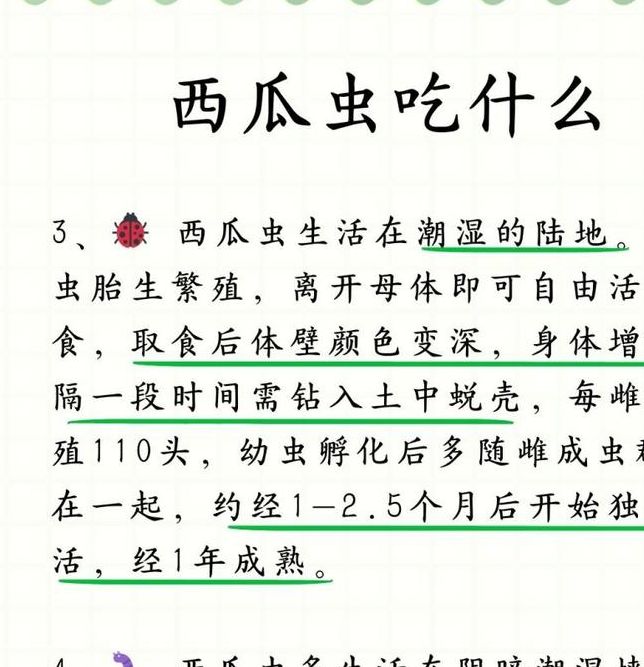 西瓜虫吃什么
3、 西瓜虫生活在潮湿的陆地。
虫胎生繁殖，离开母体即可自由活
食，取食后体壁颜色变深，身体增
隔一段时间需钻入土中蜕壳，每雌
殖110头，幼虫孵化后多随雌成虫
在一起，约经1-2.5个月后开始独
活，经1年成熟。